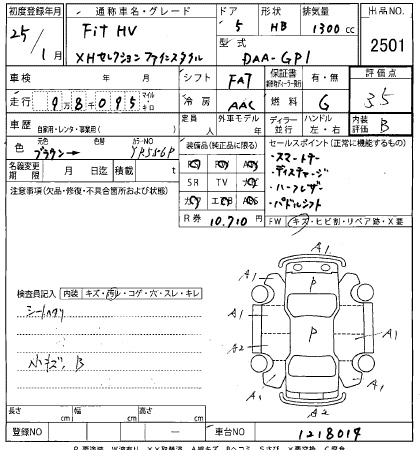 初度登録年月 通称車名・グレード ドア 形状 排気量 出品NO
25年 1月 Fit HV 5 HB 1300cc 2501
XHセレクション ファインスタイル 型式 DAA-GP1
車検 年 月 シフト FAT 保証書 有・無 評価点 3.5
走行 9万8095 マイル キロ 冷房 AAC 燃料 G
車歴 自家用・レンタ・事業用( ) 定員 人 外車モデル 年 ディーラー 並行 ハンドル 左・右 内装評価 B
色 元色 ブラウン→ 色替 カラーNO YR556P
装備品(純正品に限る) セールスポイント(正常に機能するもの)
・スマートキー
・ディスチャージ
・ハーフレザー
・パドルシフト
名義変更期限 月 日迄 積載 t
SR TV
R券 10,710円
注意事項(欠品・修復・不具合箇所および状態)
FW キズ・ヒビ割・リペア跡・X要
検査員記入 内装 キズ・汚れ・コゲ・穴・スレ・キレ
シートヘタリ
小キズ B
A1
A1 A1
P
A1 P A1
A2
A1 A1
A2
長さ cm 幅 cm 高さ cm
登録NO — 車台NO 1218014